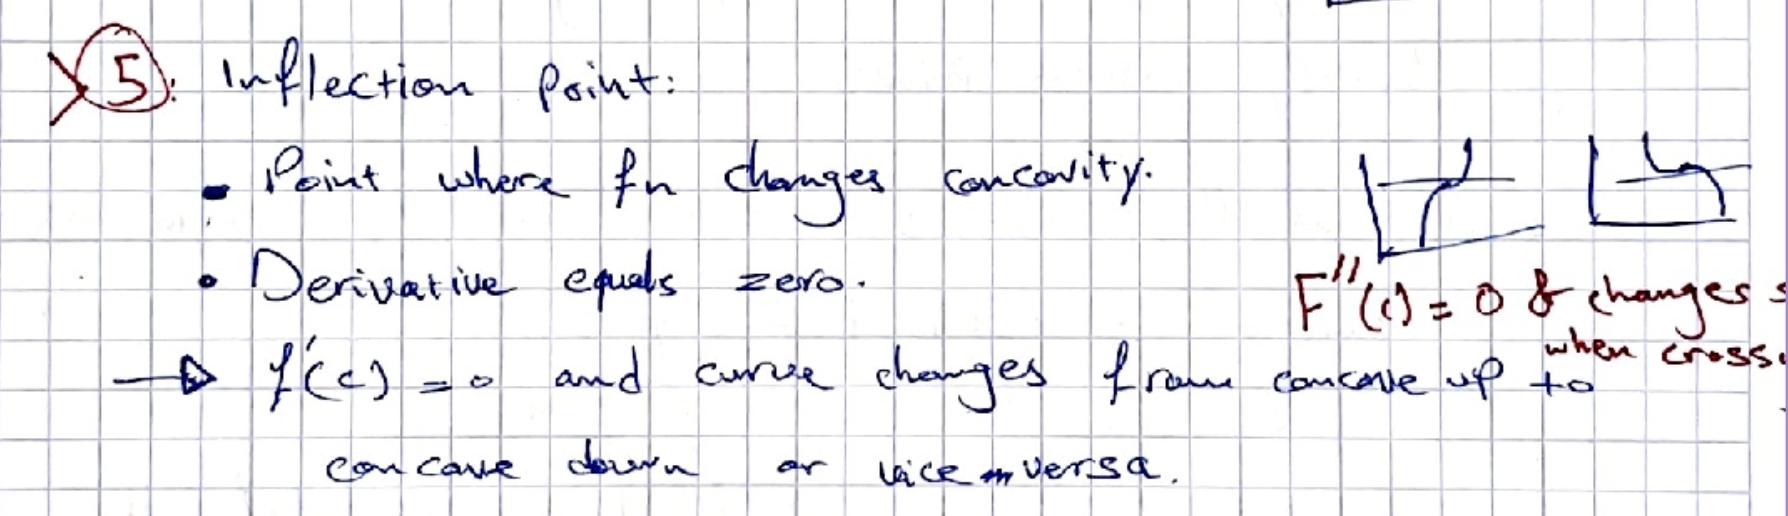 5: Inflection Point:
• Point where fn changes concavity.
• Derivative equals zero.
F''(c) = 0 & changes
when cross
→ f'(c) = 0 and curve changes from concave up to
concave down or vice versa.